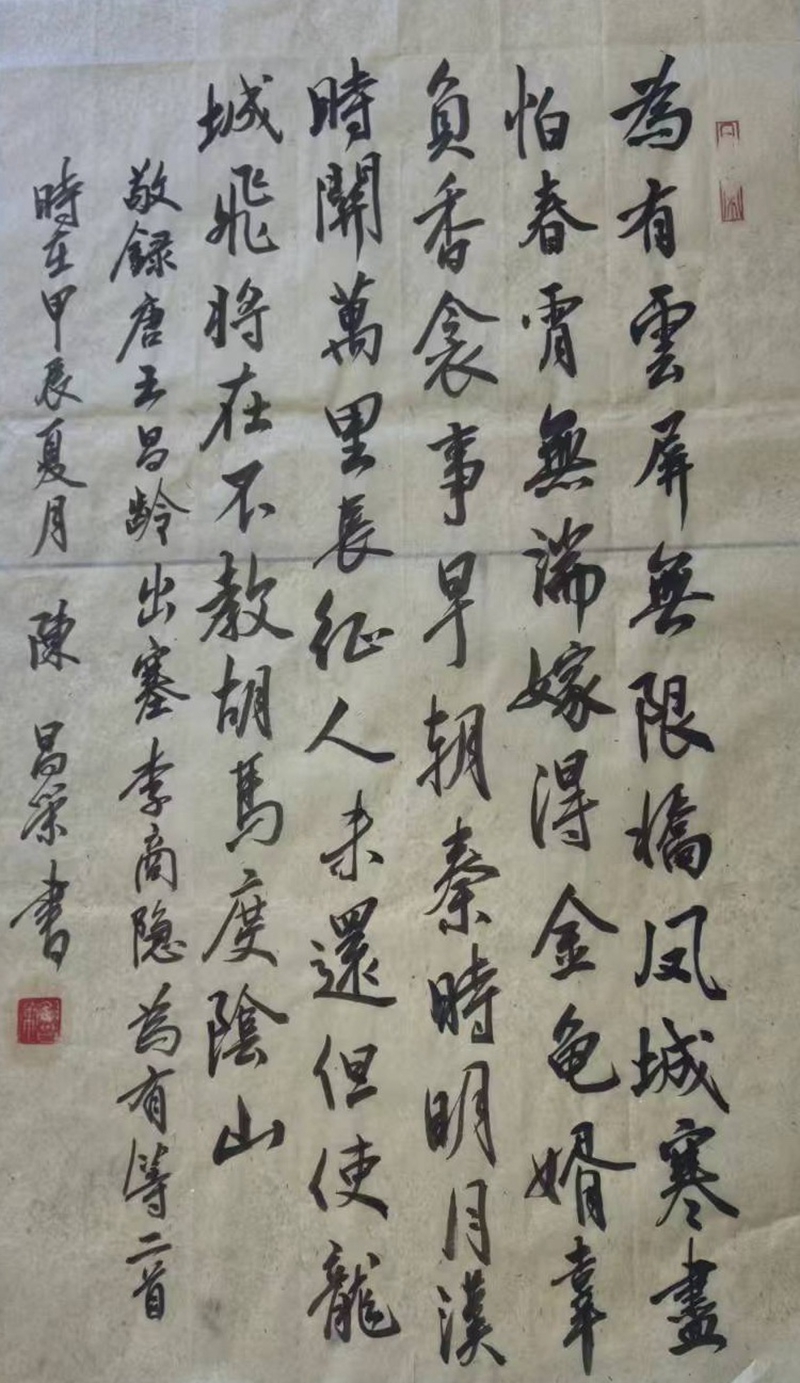 為有雲屏無限嬌凤城寒盡
怕春宵無端嫁得金龟婿辜
負香衾事早朝秦時明月漢
時關萬里長征人未還但使龍
城飛将在不教胡馬度陰山
敬録唐王昌龄出塞李商隐為有等二首
時在甲辰夏月 陳昌栄書